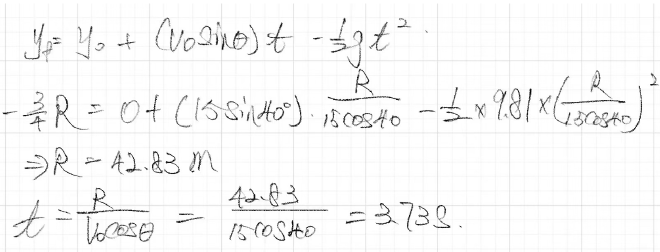 y_f = y_0 + (v_0 sinθ) t - \frac{1}{2} g t^2.
-\frac{3}{4} R = 0 + (15 sin 40°) \cdot \frac{R}{15 cos 40} - \frac{1}{2} × 9.81 × (\frac{R}{15 cos 40})^2
⇒ R = 42.83 m
t = \frac{R}{V_0 cosθ} = \frac{42.83}{15 cos 40} = 3.73 s.